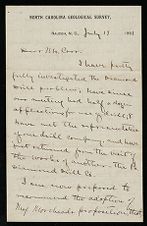 NORTH CAROLINA GEOLOGICAL SURVEY.
RALEIGH, N. C., July 17 188
Dear Mr. Carr.
I have pretty
fully investigated the Diamond
Drill problem; have since
our meeting had half a day
for us, &
have met the representative
of one drill company and have
just returned from the visit of
the works of another. the
Diamond Drill Co.
I am now prepared to
recommend the adoption of
Maj. Morehead's proposition, that